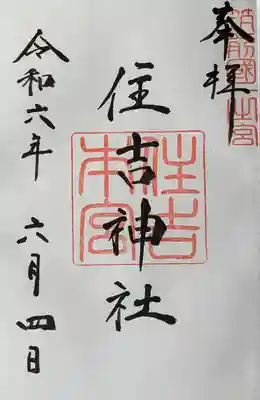 奉拝
筑前國一之宮
住吉神社
住吉本宮
令和六年 六月四日